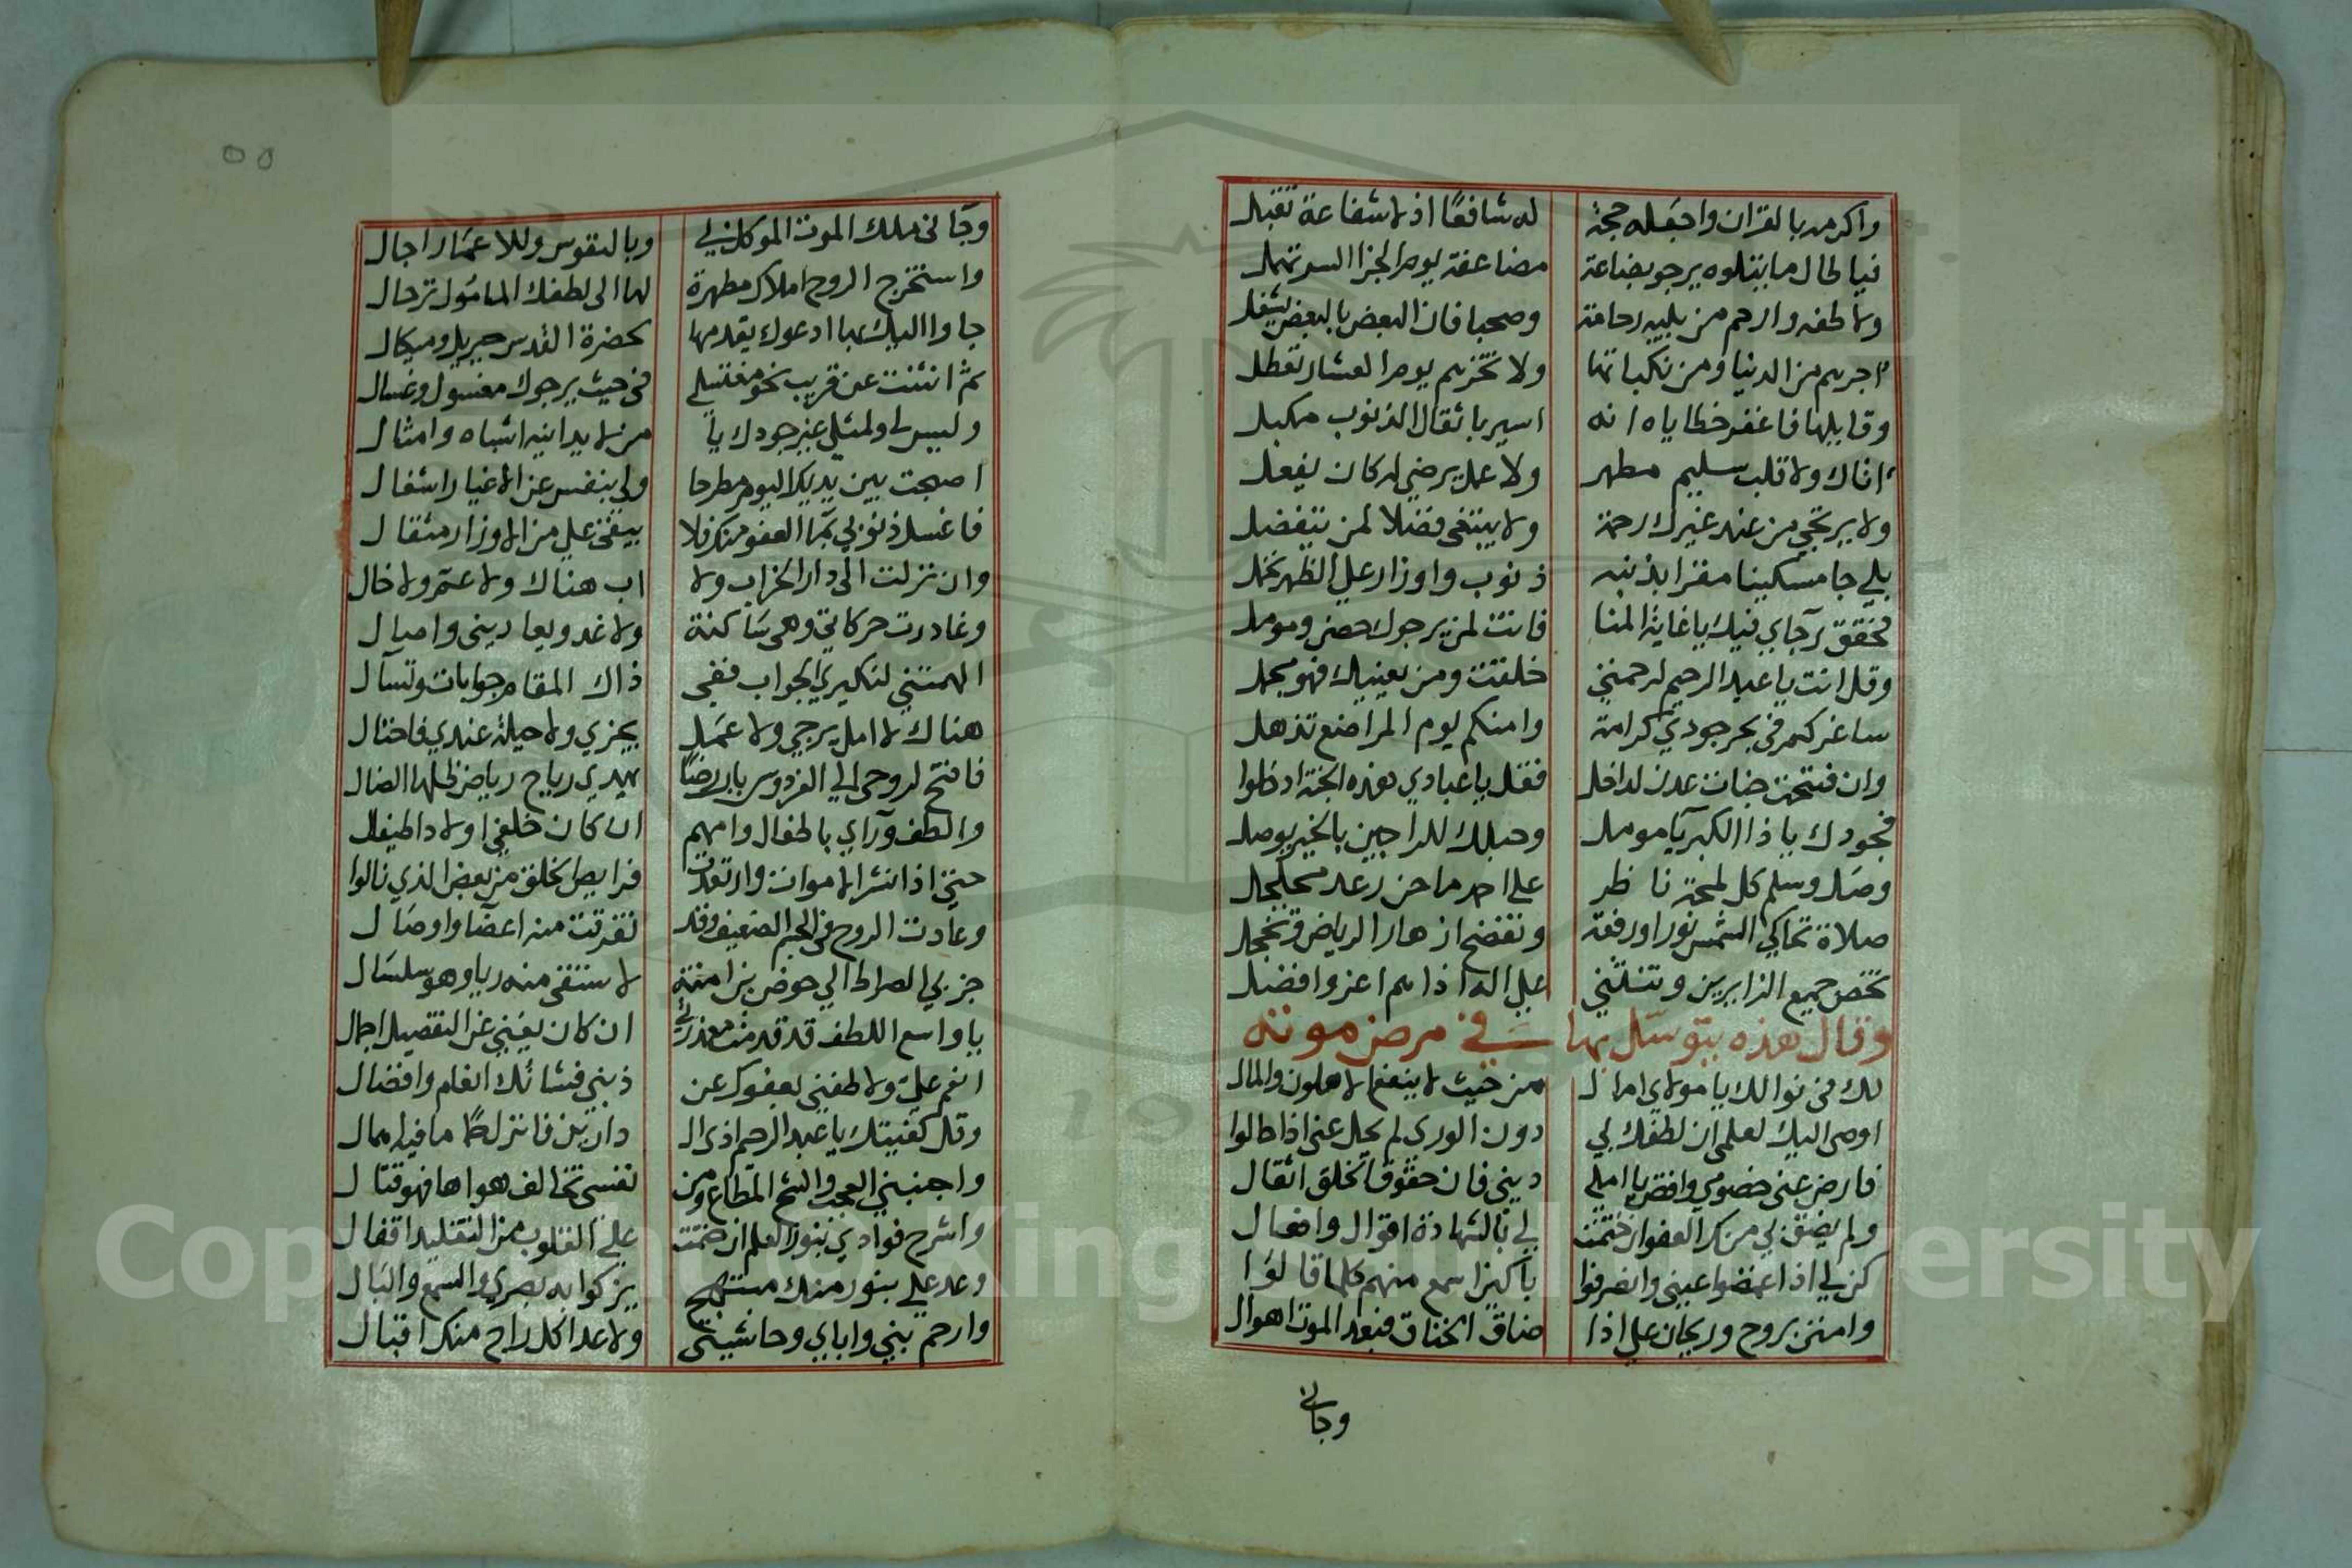 واكرمه بالقران واجعله حجة له شافعًا اذ لا شفاعة تقبل
فيا طال ما يتلوه يرجو بضاعة مضاعفة يوم الجزا السر تهمل
ولاطفه وارحم من يليه رحامة وصحبا فان البعض بالبعض يشغل
اجرهم من الدنيا ومن نكباتها ولا تخزهم يوم العشار تعطل
وقايلها فاغفر خطاياه انه اسير باثقال الذنوب مكبل
اتاك ولا قلب سليم مطهر ولا عمل يرضي له كان يفعل
ولا يرتجي من عند غيرك رحمة ولا يبتغى فضلا لمن يتفضل
بلي جا مسكينا مقرا بذنبه ذنوب واوزار علي الظهر تحمل
فحقق رجاي فيك يا غاية المنا فانت لمن يرجوك حصن وموىل
وقل انت يا عبد الرحيم لرحمتي خلقت ومن يعنيك فهو مجمل
ساغركم في بحر جودي كرامة وامنكم يوم المراضع تذهل
وان فتحت جنات عدن لداخل فقل يا عبادي هذه الجنة ادخلوا
فجودك يا ذا الكبريا مومل وحبلك للراجين بالخير يوصل
وصل وسلم كل لمحة ناظر علي احمد ما حن رعد مجلجل
صلاة تحاكي الشمس نورا ورفعة وتفضح ازهار الرياض وتخجل
تخص جميع الزايرين وتنثني علي اله اذ اهم اعز وافضل
وقال هذه يتوسل بها في مرض موته
لك في نوالك يا مولاي امال من حيث لا ينفع الاهلون والمال
اوصى اليك لعلمي ان لطفك لي دون الورى لم يحل عني اذا حالوا
فارض عني خصومي واقض يا املي ديني فان حقوق الخلق اثقال
ولم يضق لي منك العفو ان ختمت لي بالشهادة اقوال وافعال
كن لي اذا اغمضوا عيني وانصرفوا باكين اسمع منهم كلما قالوا
وامنن بروح وريحان علي اذا ضاق الخناق فبعد الموت اهوال
وجاني
٥٥
وجاني ملك الموت الموكل بي وبالنفوس وللاعمار اجال
واستخرج الروح املاك مطهرة لها الى لطفك المامول ترحال
جاوا اليك بها ادعوك يقدمها بحضرة القدس جبريل وميكال
ثم انثنت عن قريب نحو مغتسلي في حيث يرجوك مغسول وغسال
وليس لي ولمثلي غير جودك يا من لا يدانيه اشباه وامثال
اصبحت بين يديك اليوم مطرحا ولي بنفس عن الاغيار اشغال
فاغسل ذنوبي بما العفو منك فلا يبقى علي من الاوزار مثقال
وان نزلت الى دار الخراب ولا اب هناك ولا عم ولا خال
وغادرت حركاتي وهي ساكنة ولا غدو يعاديني واصال
الهمتني لنكيري الجواب ففي ذاك المقام جوابات وتسال
هناك لا امل يرجي ولا عمل يجزي ولا حيلة عندي فاحتال
فافتح لروحي الي الفردوس باب رضًا يهدي رياح رياض ظلها الضال
والطف وراي باطفال وامهم ان كان خلفي اولاد اطيفال
حتى اذا نشر الاموات وارتعدت فرايص الخلق من بعض الذي نالوا
وعادت الروح في الجسم الضعيف وقد تفرقت منه اعضا واوصال
جز بي الصراط الي حوض بنزامنة لاستقى منه ريا وهو سلسال
يا واسع اللطف قد قدمت معذرتي ان كان يغني عن التفصيل اجمال
انعم علي ولاطفني بعفوك عن ذنبي فشانك انعام وافضال
وقل كفيتك يا عبد الرحيم اذى ال دارين فانزل حمًا ما فيه اهمال
واجنبني العجب والشح المطاع ومن نفسي تخالف هواها فهو قتال
واشرح فوادي بنور العلم ان ختمت علي القلوب من التقليد اقفال
وعد علي بنور منك مبتهج يزكوا به بصري والسمع والبال
وارحم بني واباي وحاشيتي ولا عدا كل راج منك اقبال